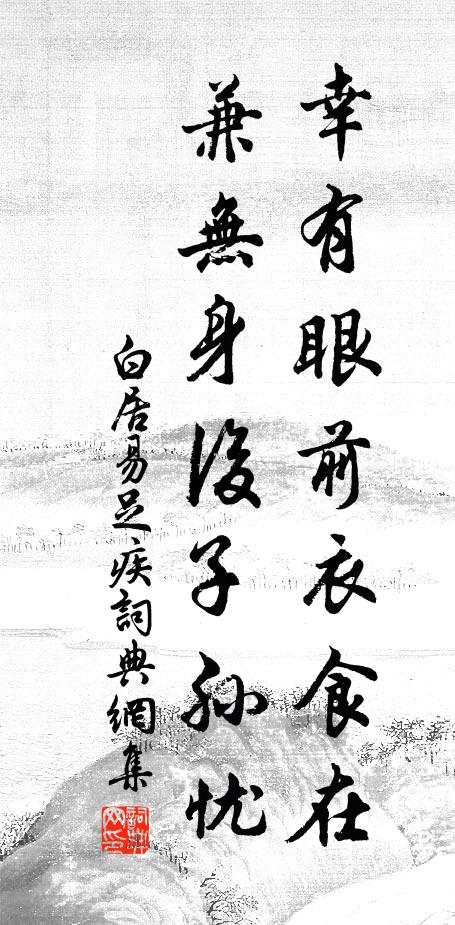 幸有眼前衣食在
兼無身後子孫忧
白居易足疾詞典網集